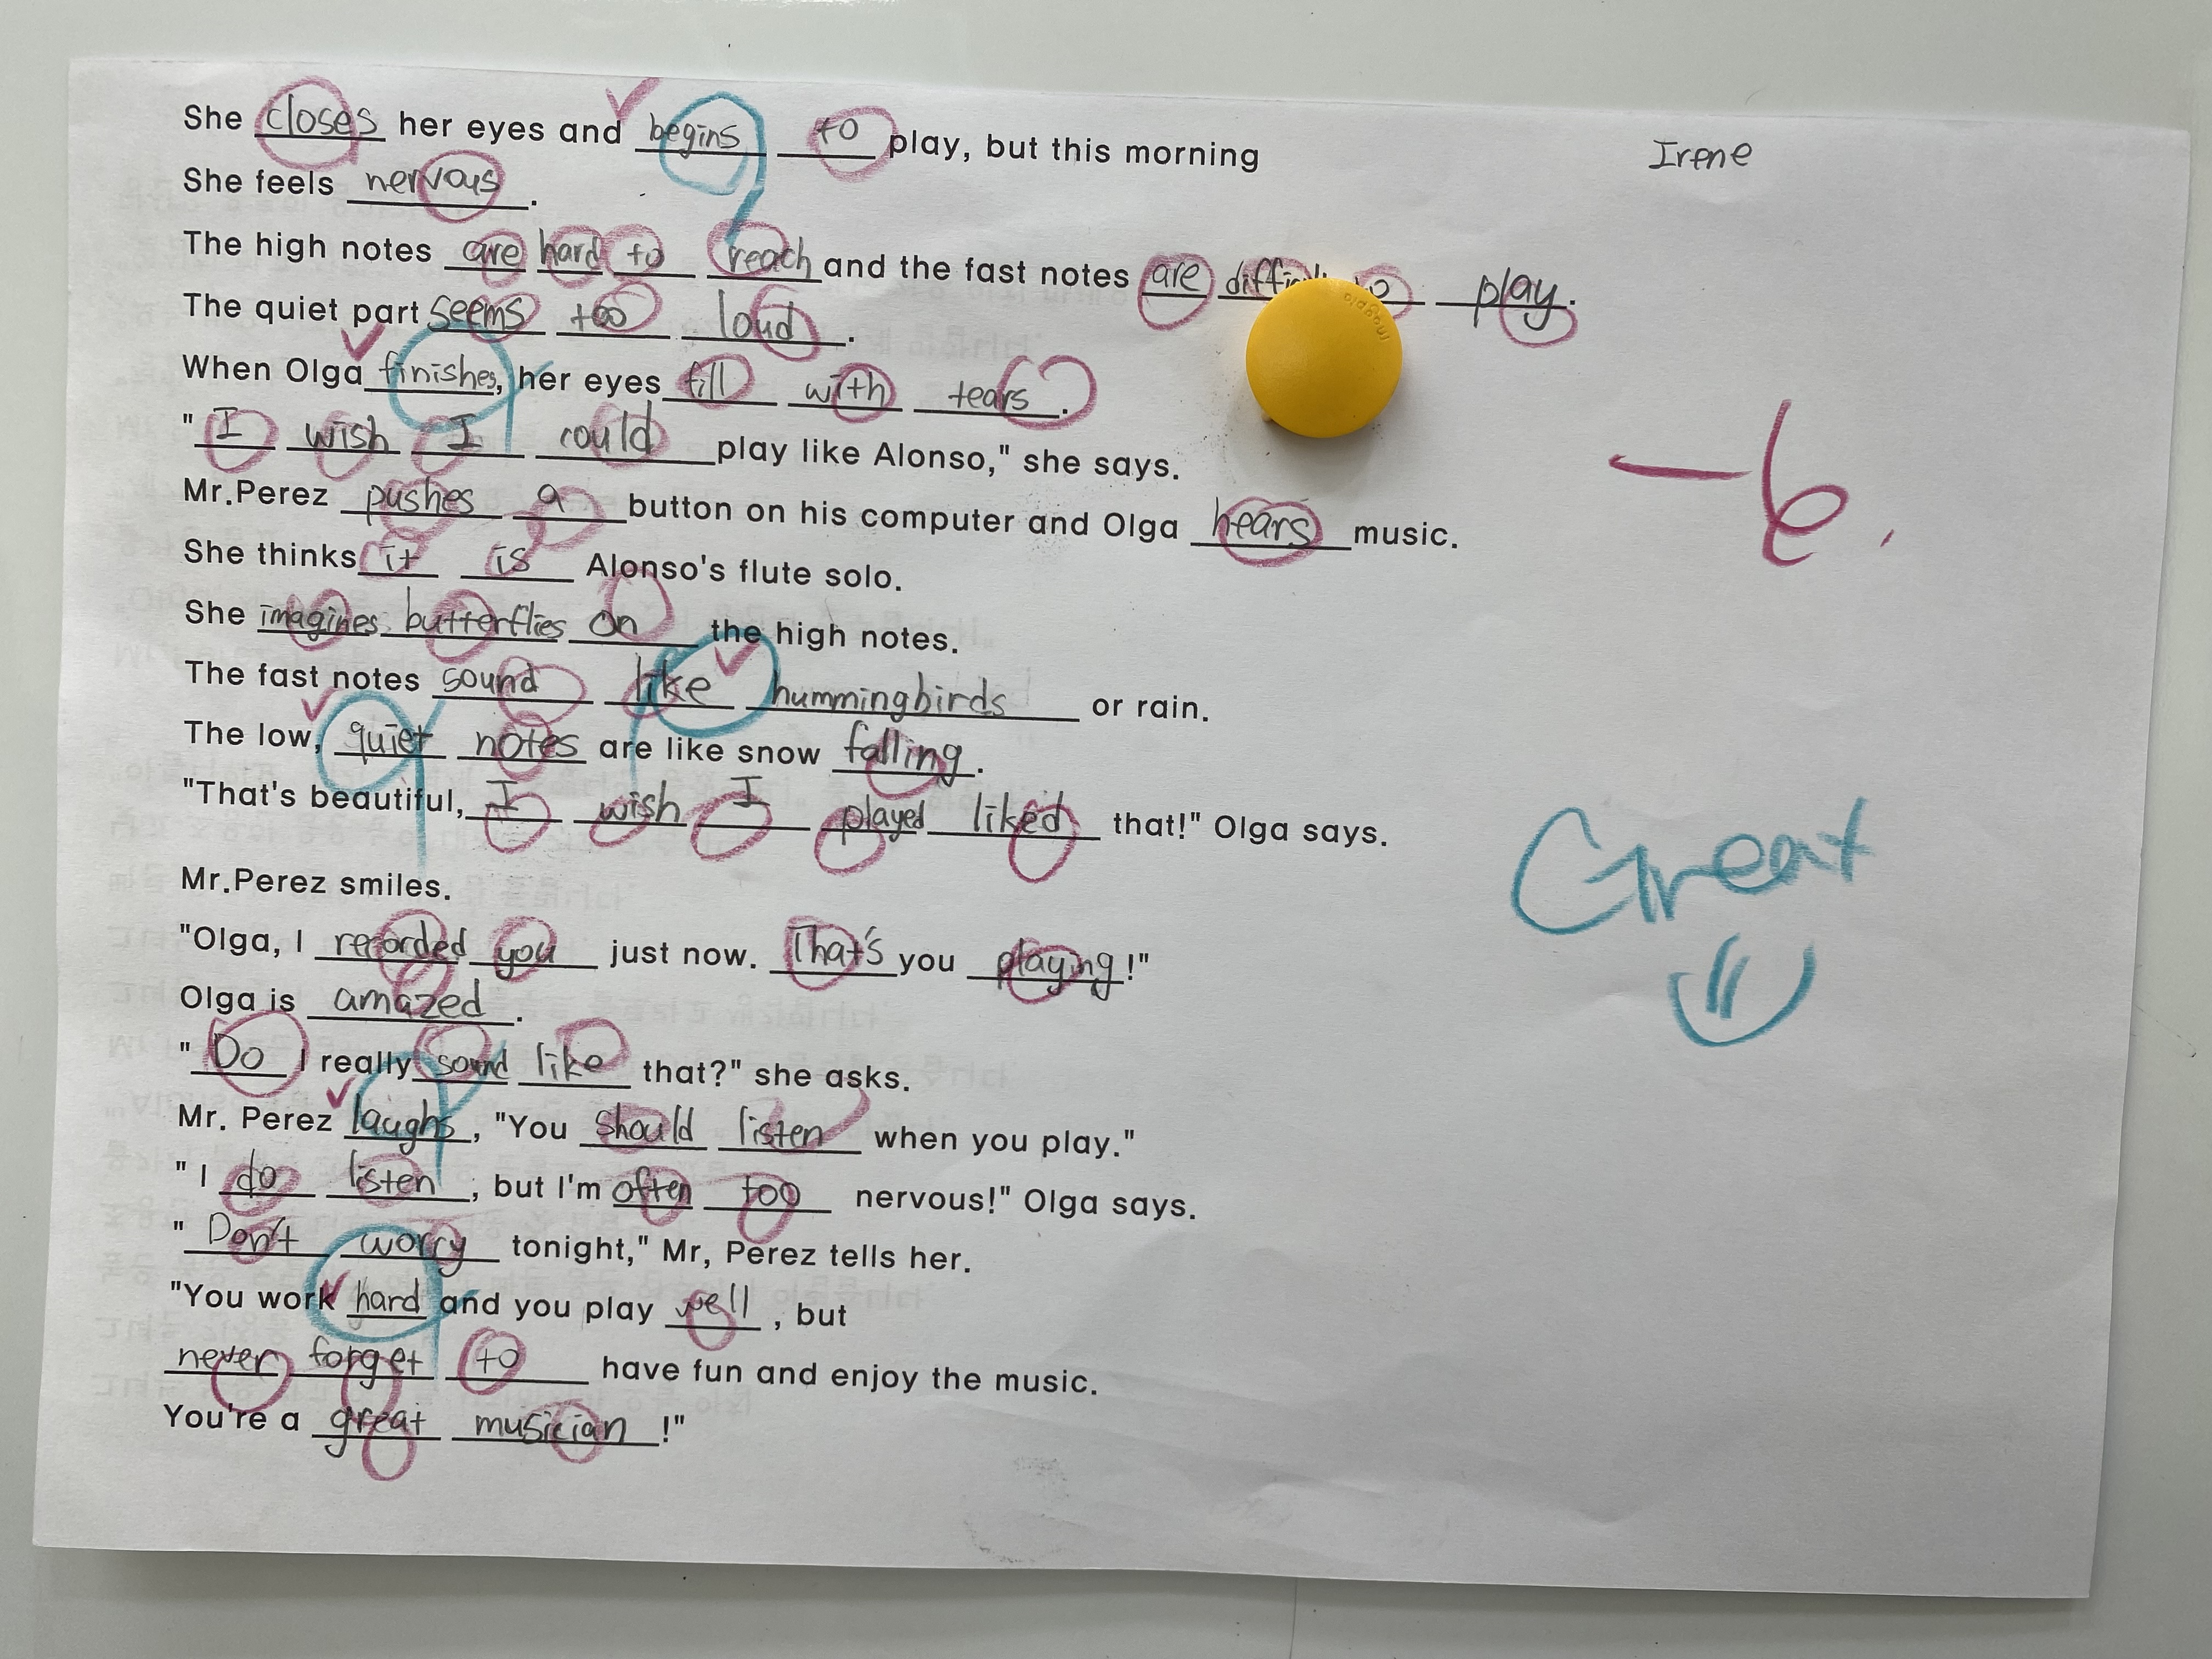 Irene
She closes her eyes and begins to play, but this morning
She feels nervous.
The high notes are hard to reach and the fast notes are play.
The quiet part seems too loud.
When Olga finishes, her eyes fill with tears.
"I wish I could play like Alonso," she says.
Mr.Perez pushes a button on his computer and Olga hears music.
She thinks it is Alonso's flute solo.
She imagines butterflies on the high notes.
The fast notes sound like hummingbirds or rain.
The low, quiet notes are like snow falling.
"That's beautiful, I wish I played liked that!" Olga says.
Mr.Perez smiles.
"Olga, I recorded you just now. That's you playing!"
Olga is amazed.
"Do I really sound like that?" she asks.
Mr. Perez laughs, "You should listen when you play."
"I do listen, but I'm often too nervous!" Olga says.
"Don't worry tonight," Mr, Perez tells her.
"You work hard and you play well, but
never forget to have fun and enjoy the music.
You're a great musician!"
-6.
Great